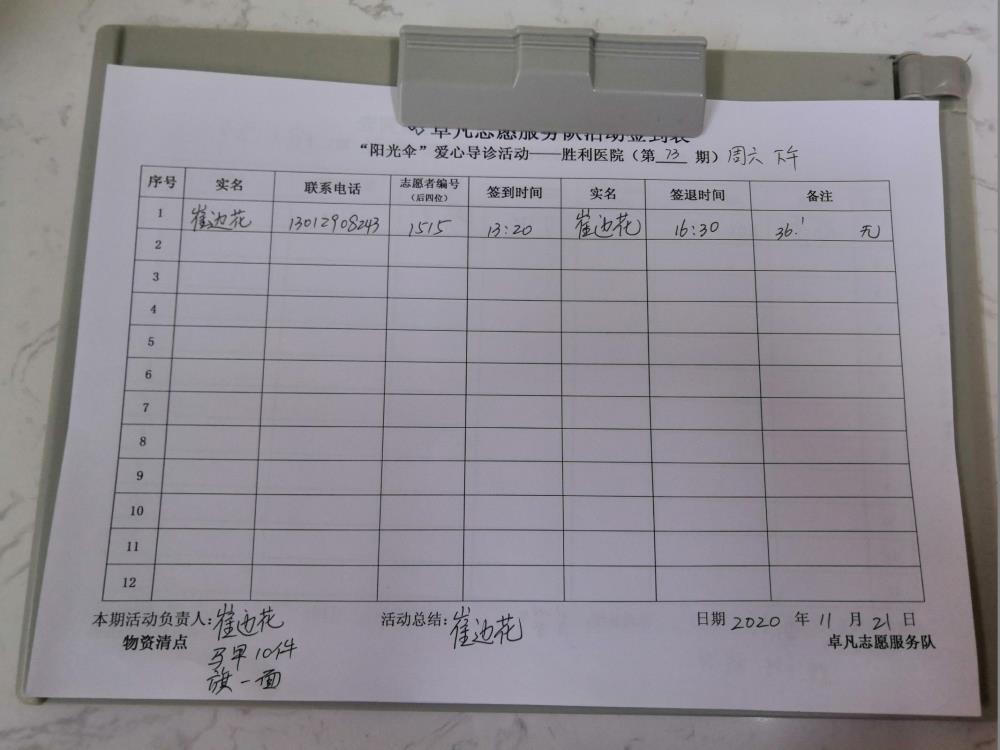 卓凡志愿服务队活动签到表
“阳光伞”爱心导诊活动——胜利医院（第 73 期）周六 下午
序号 实名 联系电话 志愿者编号（后四位） 签到时间 实名 签退时间 备注
1 崔边花 13012908243 1515 13:20 崔边花 16:30 36.1 元
2
3
4
5
6
7
8
9
10
11
12
本期活动负责人:崔边花 活动总结:崔边花 日期 2020 年 11 月 21 日
物资清点 卓凡志愿服务队
马甲10件
旗一面